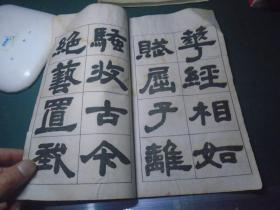 華經相如
賦屈子離
騷收古今
絕藝置我